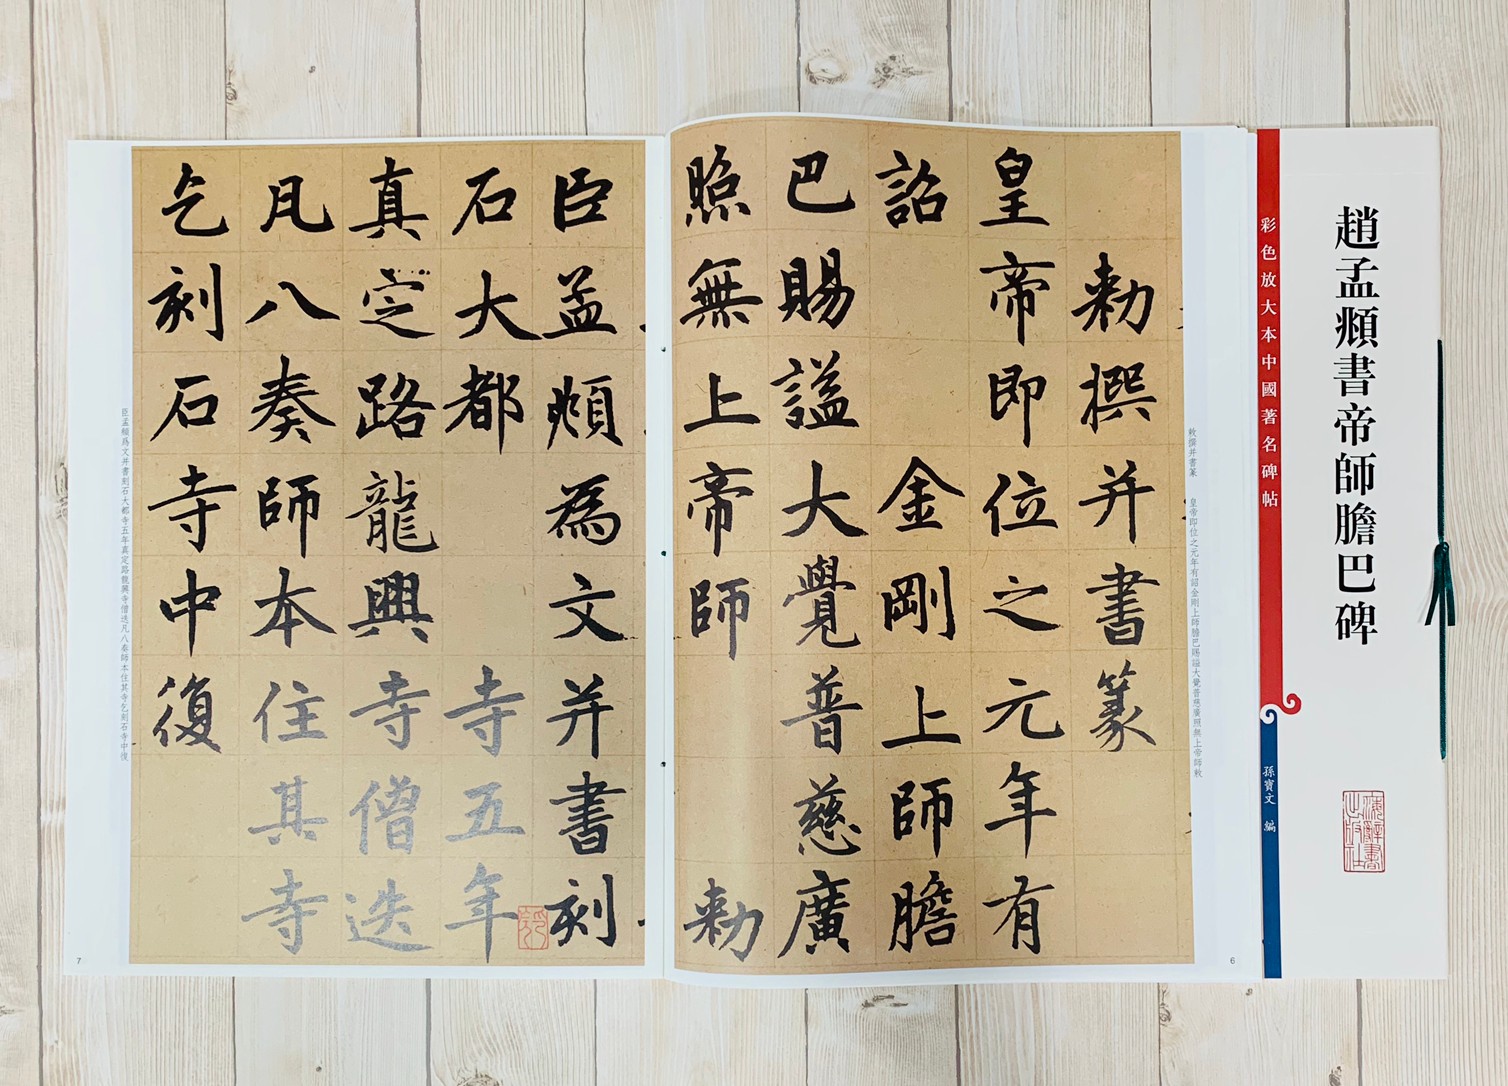 趙孟頫書帝師膽巴碑
彩色放大本中國著名碑帖
孫寶文 編
海辭書出版社
敕撰并書篆 皇帝即位之元年有詔金剛上師膽巴賜謚大覺普慈廣照無上帝師敕
敕撰并書篆
皇帝即位之元年有
詔金剛上師膽
巴賜謚大覺普慈廣
照無上帝師敕
6
臣孟頫為文并書刻
石大都寺五年
真定路龍興寺僧迭
凡八奏師本住其寺
乞刻石寺中復
臣孟頫爲文并書刻石大都寺五年真定路龍興寺僧迭凡八奏師本住其寺乞刻石寺中復
7